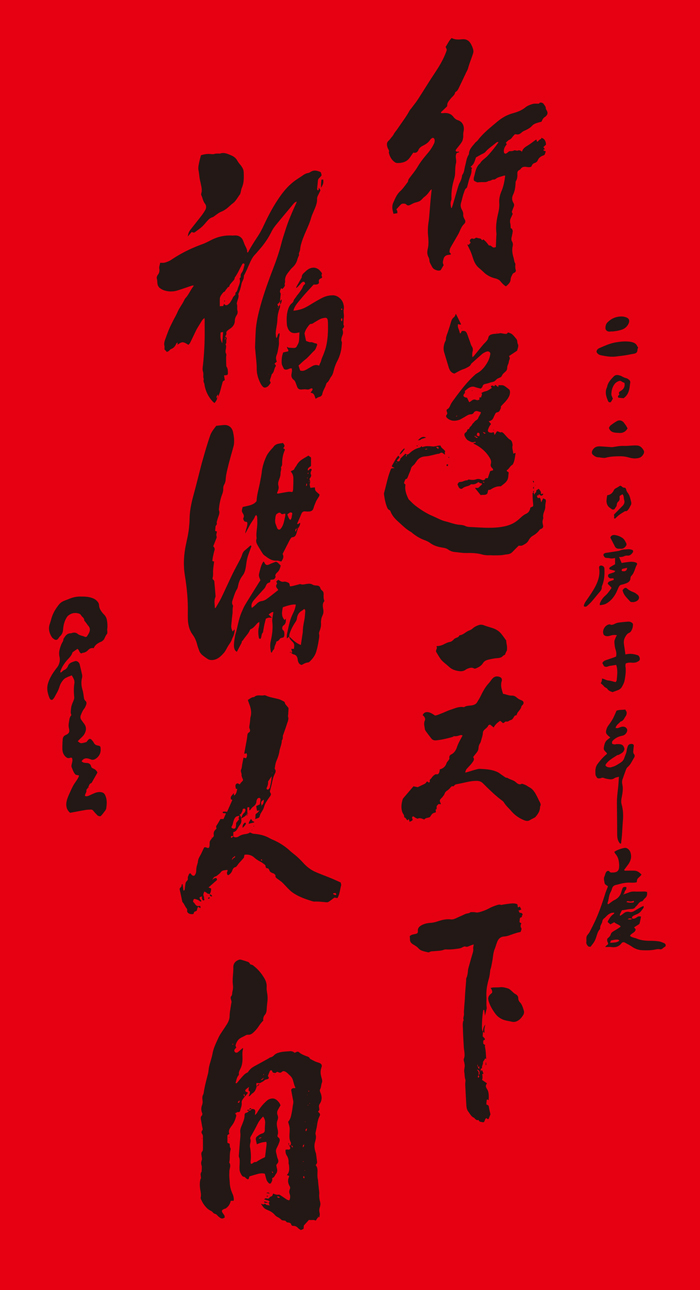 二〇二〇庚子年度
行道天下
福满人间
星云